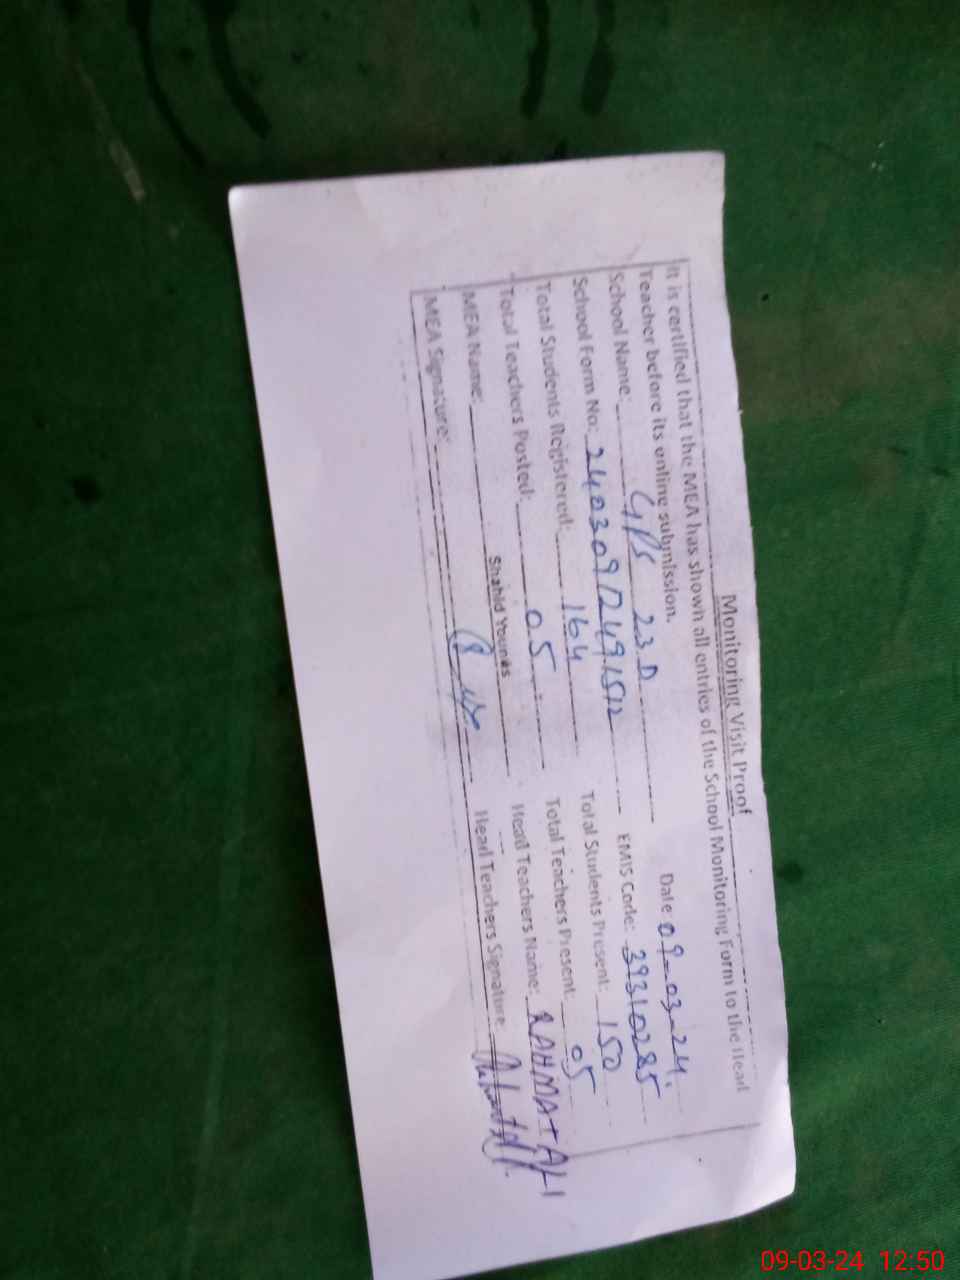 Monitoring Visit Proof
It is certified that the MEA has shown all entries of the School Monitoring Form to the Head
Teacher before its online submission. Date 09-03-24.
School Name: GPS 23.D EMIS Code: 39310285
School Form No: 240309124915112 Total Students Present: 150
Total Students Registered: 164 Total Teachers Present: 05
Total Teachers Posted: 05 Head Teachers Name: RAHMAT ALI
MEA Name: Shahid Younas Head Teachers Signature:
MEA Signature:
09-03-24 12:50